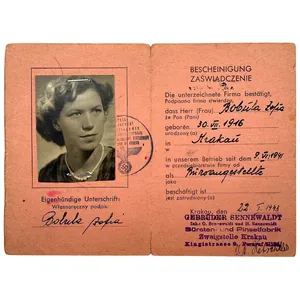 Eigenhändige Unterschrift:
Własnoręczny podpis:
Bobula Zofia
BESCHEINIGUNG
ZAŚWIADCZENIE
Die unterzeichnete Firma bestätigt,
Podpisana firma stwierdza,
dass Herr (Frau) Bobula Zofia
że Pan (Pani)
geboren 30. VII. 1916
urodzony(a)
in Krakau
w
in unserem Betrieb seit dem 9 VII 1941
w przedsiębiorstwie firmy od
als Büroangestellte
jako
beschäftigt ist.
jest zatrudniony(a)
Krakau, den 22
Kraków, dnia
GEBRÜDER SENNEWALDT
Bürsten- und Pinselfabrik
Zweigstelle Krakau